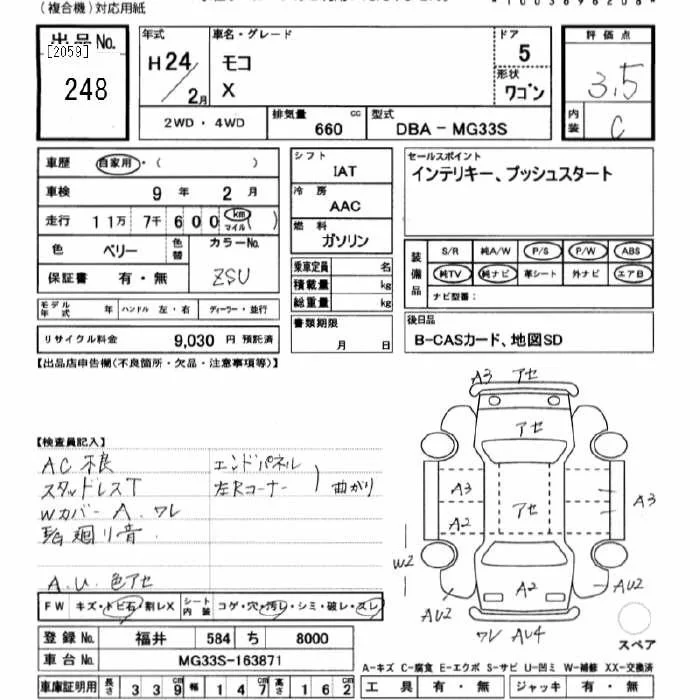 (複合機)対応用紙
*1003896208*
出品No.
[2059]
248
年式
H24/2月
車名・グレード
モコ
X
ドア
5
形状
ワゴン
評価点
3.5
内装
C
2WD・4WD
排気量 660 cc
型式 DBA-MG33S
車歴 自家用・( )
車検 9年 2月
走行 11万 7千 600 km マイル ( )
色 ベリー 色替
カラーNo.
ZSU
保証書 有・無
モデル年式 年 ハンドル 左・右 ディーラー・並行
リサイクル料金 9,030 円 預託済
シフト
IAT
冷房
AAC
燃料
ガソリン
乗車定員 名
積載量 kg
総重量 kg
書類期限
月 日
セールスポイント
インテリキー、プッシュスタート
装備品
S/R 純A/W P/S P/W ABS
純TV 純ナビ 革シート 外ナビ エアB
ナビ型番:
後日品
B-CASカード、地図SD
【出品店申告欄(不良箇所・欠品・注意事項等)】
【検査員記入】
AC不良
スタッドレスT
Wカバー A. ワレ
輪廻り音
A.U.色アセ
エンドパネル
左Rコーナー
曲がり
A3 アセ
アセ
A3
アセ
A3
A2
W2
A2
AU2
AU2
ワレ AU4
スペア
FW キズ・トビ石・割レX
シート内装 コゲ・穴・汚レ・シミ・破レ・スレ
登録No. 福井 584 ち 8000
車台No. MG33S-163871
車庫証明用 長さ 339 幅 147 高さ 162
A-キズ C-腐食 E-エクボ S-サビ U-凹ミ W-補修 XX-交換済
工具 有・無 ジャッキ 有・無